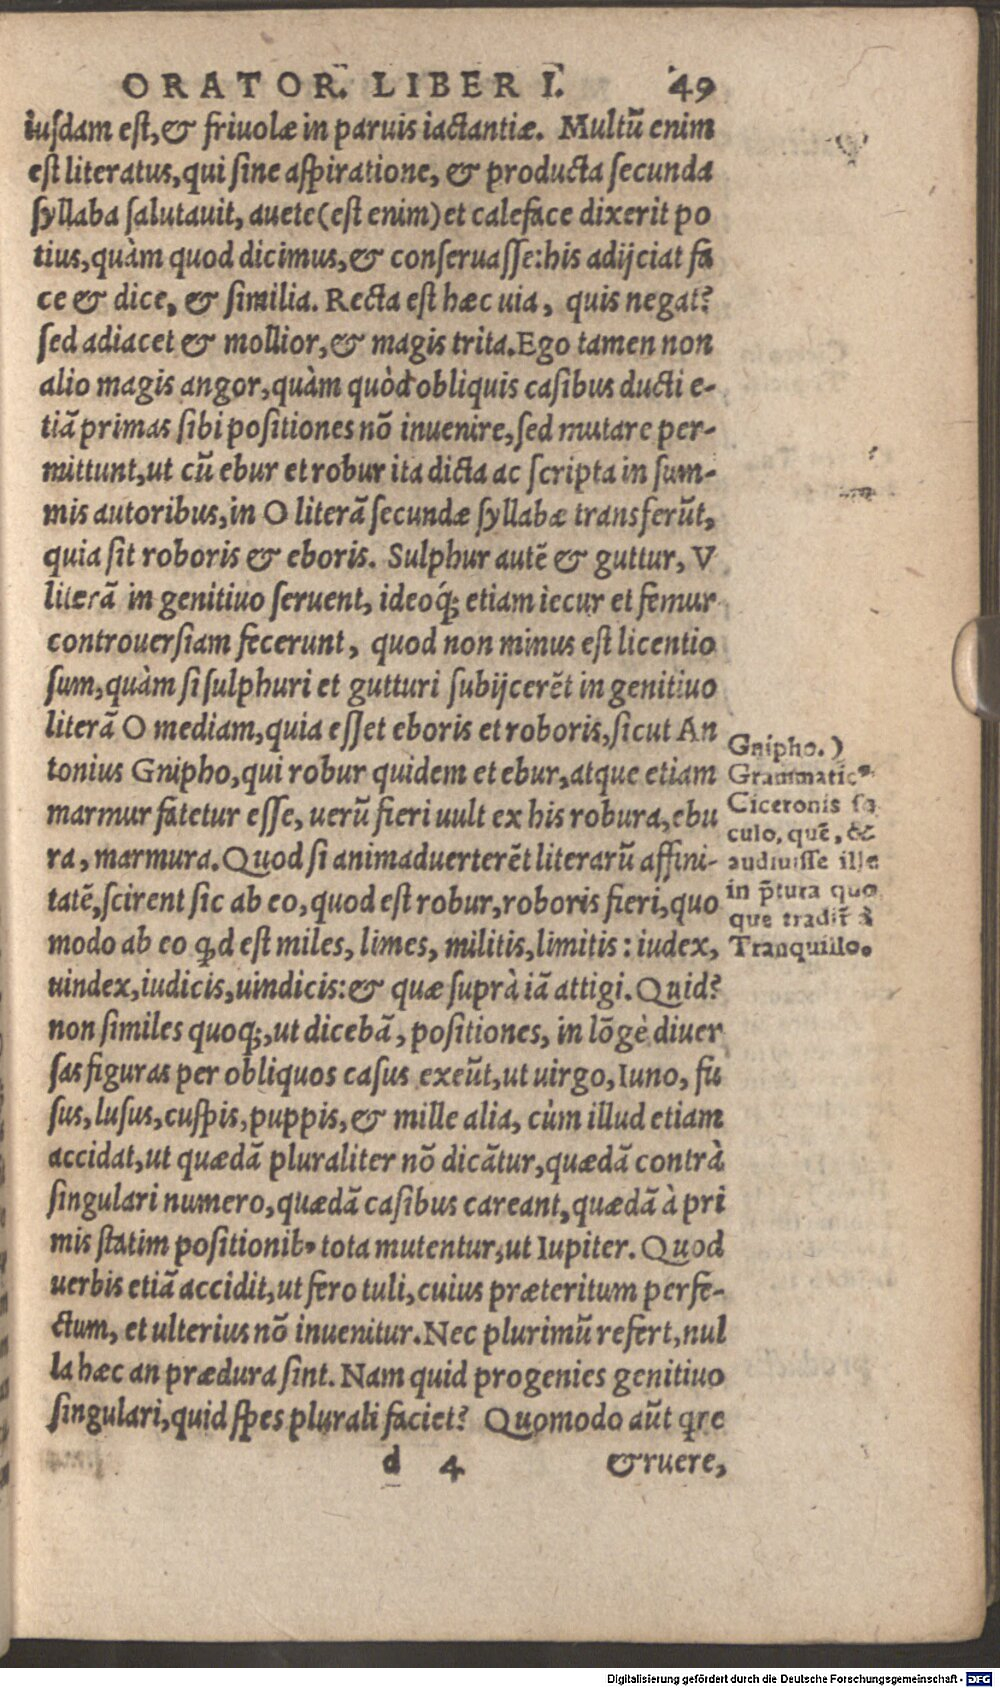 ORATOR. LIBER I. 49
iusdam est, & friuolæ in paruis iactantiæ. Multũ enim
est literatus, qui sine aspiratione, & producta secunda
syllaba salutauit, auete (est enim) et caleface dixerit po
tius, quàm quod dicimus, & conseruasse: his adijciat fa
ce & dice, & similia. Recta est hæc uia, quis negat?
sed adiacet & mollior, & magis trita. Ego tamen non
alio magis angor, quàm quòd obliquis casibus ducti e-
tiã primas sibi positiones nõ inuenire, sed mutare per-
mittunt, ut cũ ebur et robur ita dicta ac scripta in sum-
mis autoribus, in O literã secundæ syllabæ transferũt,
quia sit roboris & eboris. Sulphur autẽ & guttur, V
literã in genitiuo seruent, ideoq́; etiam iecur et femur
controuersiam fecerunt, quod non minus est licentio
sum, quàm si sulphuri et gutturi subijcerẽt in genitiuo
literã O mediam, quia esset eboris et roboris, sicut An
tonius Gnipho, qui robur quidem et ebur, atque etiam
marmur fatetur esse, uerũ fieri uult ex his robura, ebu
ra, marmura. Quod si animaduerterẽt literarũ affini-
tatẽ, scirent sic ab eo, quod est robur, roboris fieri, quo
modo ab eo qd est miles, limes, militis, limitis: iudex,
uindex, iudicis, uindicis: & quæ suprà iã attigi. Quid?
non similes quoq;, ut dicebã, positiones, in lõgè diuer
sas figuras per obliquos casus exeũt, ut uirgo, Iuno, fu
sus, lusus, cuspis, puppis, & mille alia, cùm illud etiam
accidat, ut quædã pluraliter nõ dicãtur, quædã contrà
singulari numero, quædã casibus careant, quædã à pri
mis statim positionib⁹ tota mutentur, ut Iupiter. Quod
uerbis etiã accidit, ut fero tuli, cuius præteritum perfe-
ctum, et ulterius nõ inuenitur. Nec plurimũ refert, nul
la hæc an prædura sint. Nam quid progenies genitiuo
singulari, quid spes plurali faciet? Quomodo aũt qre
d 4 &ruere,
Gnipho.)
Grammatic⁹
Ciceronis sę
culo, quẽ, &
audiuisse ille
in p̃tura quo
que tradit̃ à
Tranquillo.
Digitalisierung gefördert durch die Deutsche Forschungsgemeinschaft - DFG